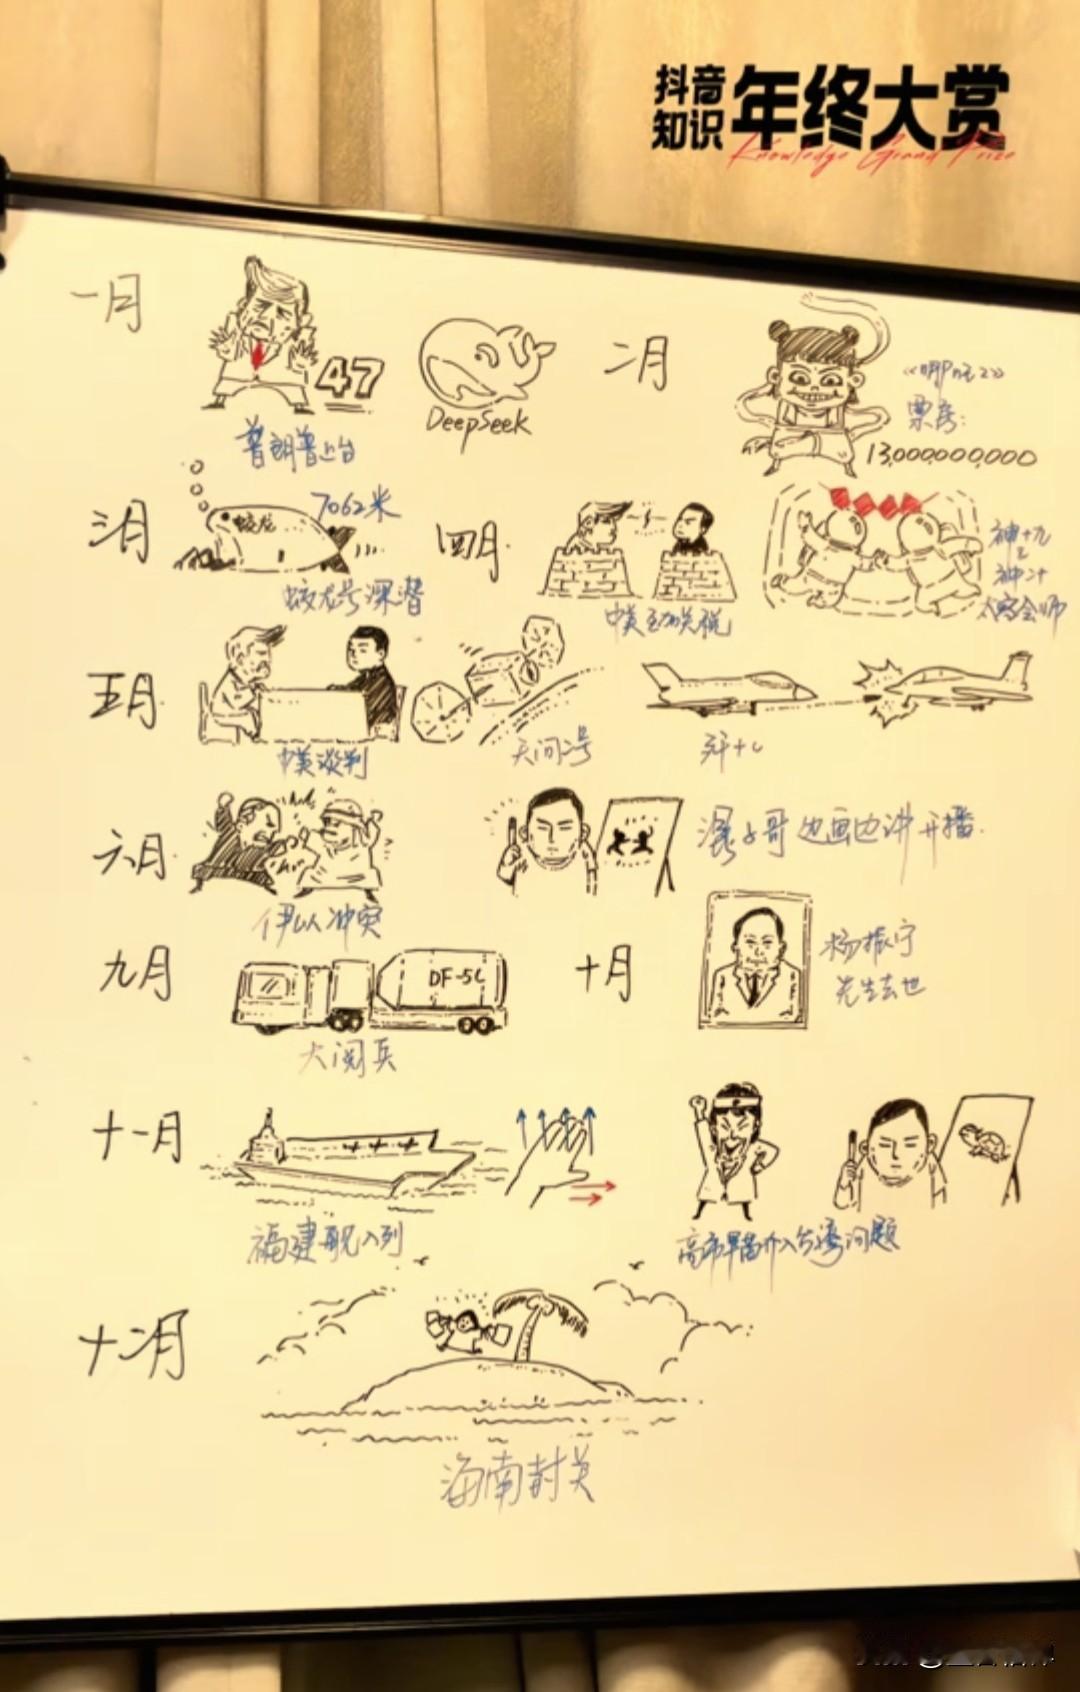 抖音
知识
年终大赏
Knowledge Grand Prize
一月
47
普朗普上台
DeepSeek
二月
《哪吒2》
票房：
13,000,000,000
三月
7062米
蛟龙
蛟龙号深潜
四月.
中美互加关税
神十九
神二十
太空会师
五月.
中美谈判
天问二号
歼十C
六月.
伊以冲突
混子哥边画边讲开播.
九月
DF-5C
大阅兵
十月
杨振宁
先生去世
十一月
福建舰入列
高市早苗介入台湾问题
十二月
海南封关